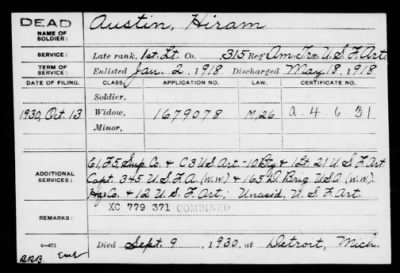 DEAD
NAME OF SOLDIER:
Austin, Hiram
SERVICE:
Late rank, 1st. Lt. Co. , 315 Reg't Am. Trn. U.S.F. Art.
TERM OF SERVICE:
Enlisted Jan. 2, 1918 Discharged May 18, 1918
DATE OF FILING. CLASS. APPLICATION NO. LAW. CERTIFICATE NO.
Soldier,
1930, Oct. 13. Widow, 1679078 M,26 a-4-6-31
Minor,
ADDITIONAL SERVICES:
Sup Co. & C 3 U S Art - & 1st Lt 21 U S F Art
Capt. 345 U S F A (W.W.) & 165 D. Brig USA (W.W.)
Hq Co. & 12 U.S.F. Art.; Unassd, U.S.F. Art.
XC 779 371 COMBINED
REMARKS:
Died Sept. 9, 1930, at Detroit, Mich.